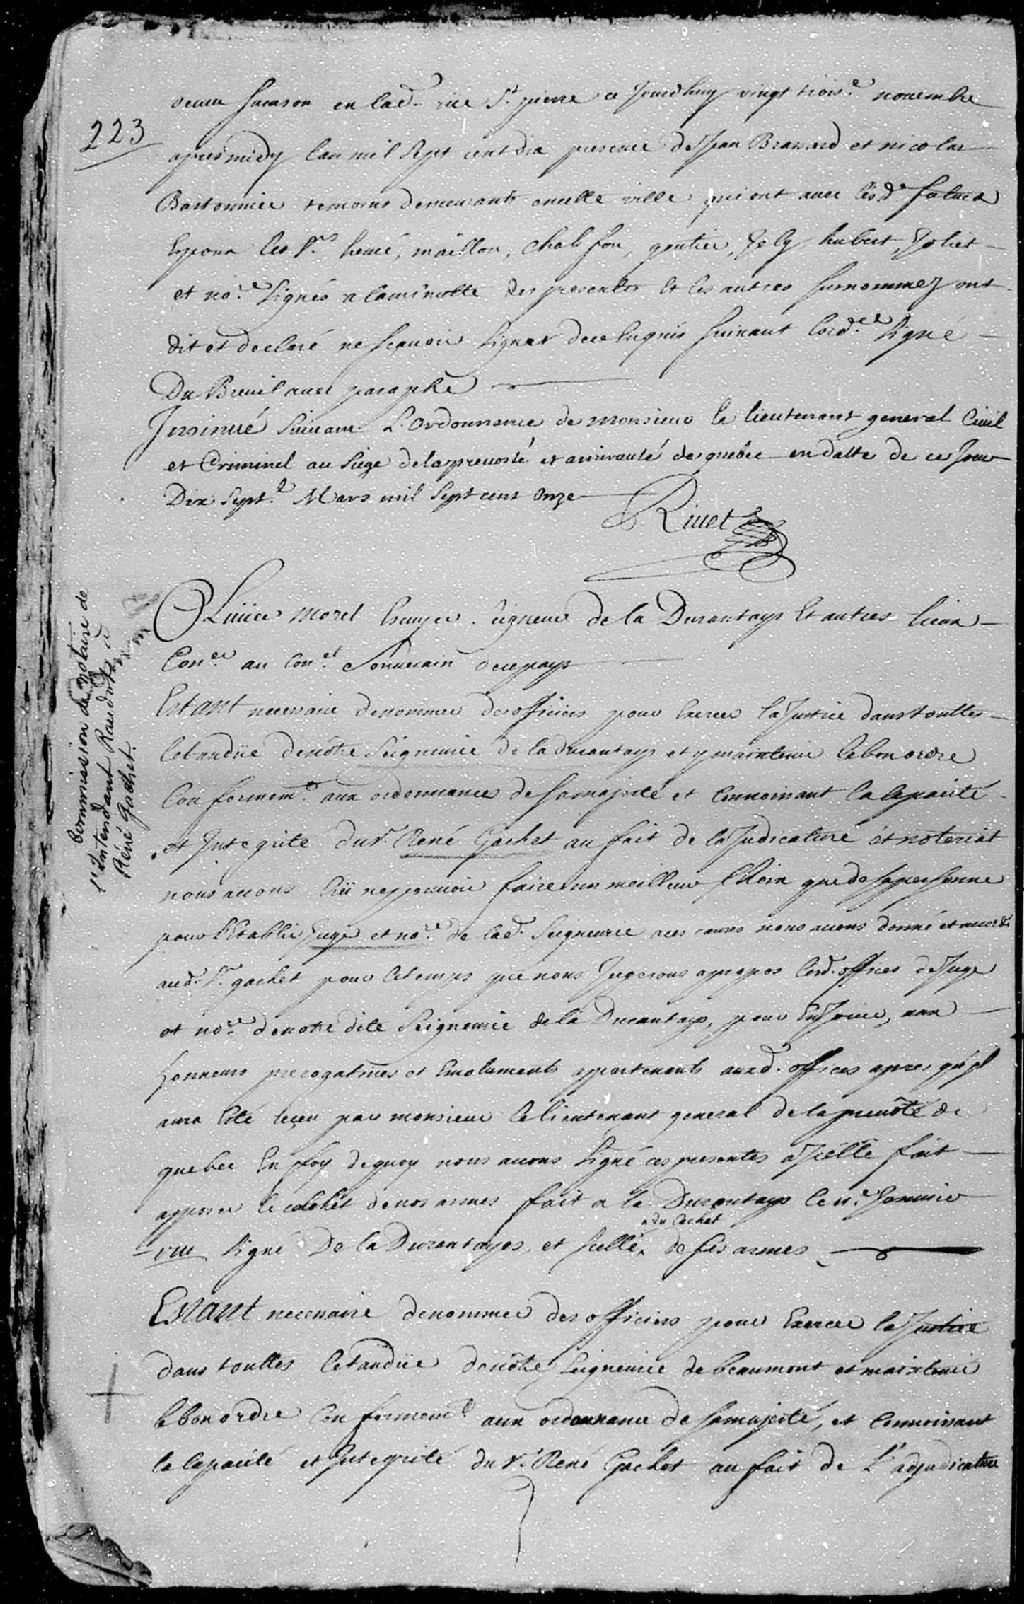 veuve Samson en lad. rue St pierre ce Jourdhuy vingt troise. novembre
223
apresmidy lan mil Sept cent dix presence de Jean Branard et nicolas
Bastonnier temoins demeurants encette ville qui ont avec lesd.
les Srs. hemé, maillou, Chalifou, gautier, Joly hubert Joliet
et nore. Signés a laminutte des presentes Et les autres surnommez ont
dit et declaré ne scavoir Signer dece Enquis suivant lord.ce Signé
Du Breuil avec paraphe
Insinué Suivant L'Ordonnance de Monsieur le lieutenant general Civil
et Criminel au Siege de la prevosté et amirauté de quebec en datte de ce Jour
Dix Sept.e Mars mil Sept cent Onze
Rivet
Commission de Notaire de
l'Intendant Raudot à
René Gachet.
OLivier Morel Escuyer Seigneur de la Durantaye Et autres lieux
Conser. au Conel. Souverain de ce pays
Estant necessaire denommer des officiers pour Exercer la Justice dans touttes
Letandüe de nôtre Seigneurie de la durantaye et y maintenir le bon ordre
Conformemt. aux ordonnances de Sa majesté et Connoissant la Capacité
et Integrité du Sr. René Gachet au fait de la Judicature et notariat
nous avons Crü ne pouvoir faire un meilleur Choix que de sa personne
pour L'Etablir Juge et nore. de lad. Seigneurie a ces causes nous avons donné et
aud. Sr. gachet pour le temps que nous Jugerons apropos lesd. offices de Juge
et nore. denotre dite Seigneurie de la Durantaye, pour En Jouir, aux
honneurs prerogatives et Emoluments appartenants auxd. offices apres qu'il
aura Esté receu par monsieur le lieutenant general de la prevosté de
quebec En foy dequoy nous avons Signé ces presentes a Icelle fait
apposer le cachet de nos armes fait a la Durantaye le ne. Janvier
Signé De la Durantaye et scellé du Cachet de ses armes
Estant necessaire denommer des officiers pour Exercer la Justice
dans touttes Letandüe denôtre Seigneurie de beaumont et maintenir
le bon ordre Conformemt. aux ordonnances de Sa majesté, et Connoissant
la Capacité et Integrité du Sr. René Gachet au fait de L'adjudicature